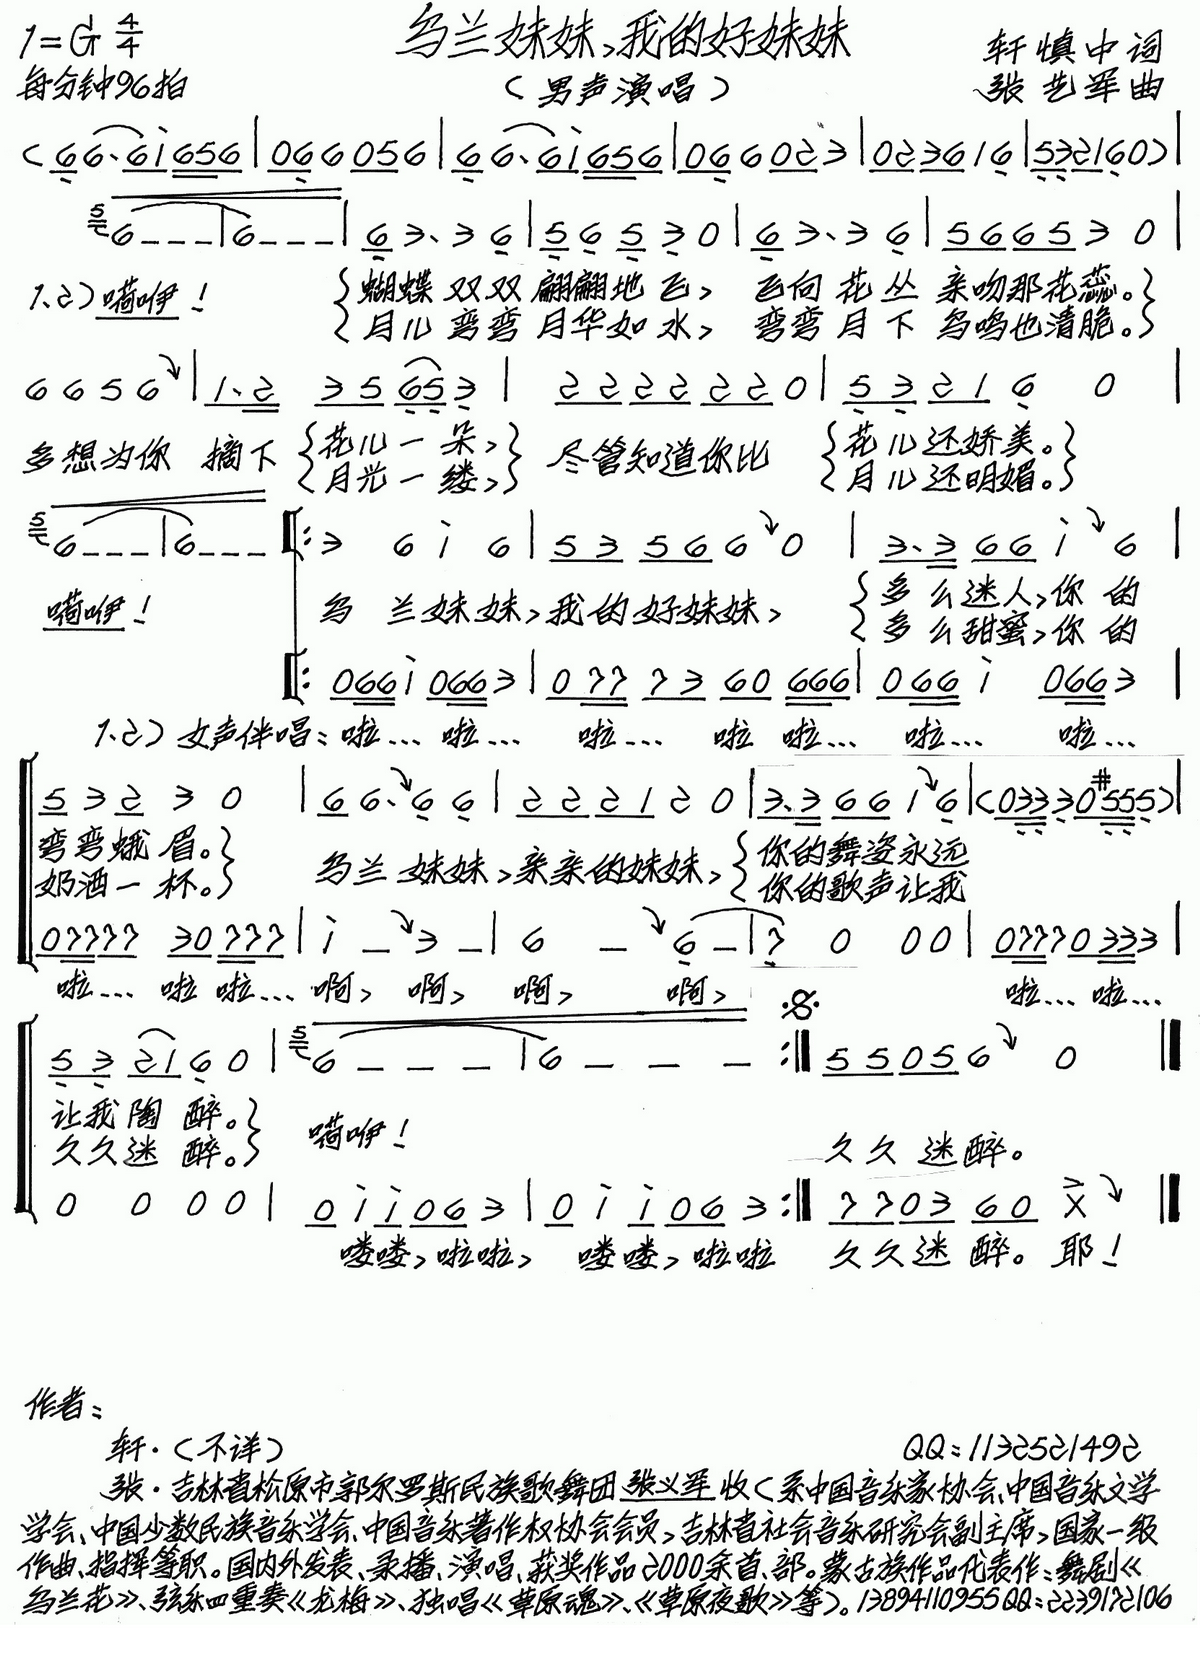 1=G 4/4
乌兰妹妹,我的好妹妹
轩慎中词
每分钟96拍
(男声演唱)
张艺军曲
(6 6·6i656|066056|6 6·6i656|066023|023616|532160)|
5 6---|6---|6 3·3 6|5 6 5 3 0|6 3·3 6|5 6 6 5 3 0|
1.2)嗬咿! {蝴蝶双双翩翩地飞, 飞向花丛亲吻那花蕊。}
{月儿弯弯月华如水, 弯弯月下鸟鸣也清脆。}
6 6 5 6|1·2 3 5 65 3|2 2 2 2 2 2 0|5 3 2 1 6 0|
多想为你 摘下 {花儿一朵,} 尽管知道你比 {花儿还娇美。}
{月光一缕,} {月儿还明媚。}
5 6---|6---|: 3 6 i 6|5 3 5 6 6 0|3·3 6 6 i 6|
嗬咿! 乌兰妹妹,我的好妹妹, {多么迷人,你的
{多么甜蜜,你的
|: 066i 0663|0 77 73 60 666|066 i 0663|
1.2)女声伴唱:啦… 啦… 啦… 啦 啦… 啦… 啦…
5 3 2 3 0|6 6·6 6|2 2 2 1 2 0|3·3 6 6 1 6|(03330#555)|
弯弯蛾眉。} 乌兰妹妹,亲亲的妹妹,{你的舞姿永远
奶酒一杯。} {你的歌声让我
07777 30 777|i - 3 -|6 - 6 -|7 0 0 0|0777 0333|
啦… 啦 啦… 啊, 啊, 啊, 啊, 啦… 啦…
5 3 21 6 0|5 6 - - -|6 - - - :|5 5 0 5 6 0||
让我陶醉。} 嗬咿!
久久迷醉。} 久久迷醉。
0 0 0 0|0 i i 0 6 3|0 i i 0 6 3:|7 7 0 3 6 0 X||
喽喽,啦啦, 喽喽,啦啦 久久迷醉。耶!
作者:
轩·(不详) QQ:1132521492
张·吉林省松原市郭尔罗斯民族歌舞团张义军收(系中国音乐家协会、中国音乐文学
学会、中国少数民族音乐学会、中国音乐著作权协会会员,吉林省社会音乐研究会副主席,国家一级
作曲、指挥等职。国内外发表、录播、演唱、获奖作品2000余首、部。蒙古族作品代表作:舞剧《
乌兰花》、弦乐四重奏《龙梅》、独唱《草原魂》、《草原夜歌》等)。13894110955QQ:2239172106